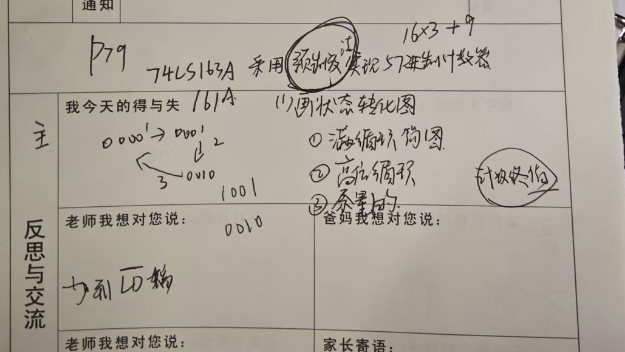 通知
16×3+9
P79
74LS163A 采用预制数法实现57进制计数器
主
我今天的得与失
161A
(1)画状态转化图
0000 1→ 0001
2
3
0010
① 满循环的图
② 高位循环
③ 余量的
计数终值
1001
0010
反思与交流
老师我想对您说:
爸妈我想对您说:
LD
老师我想对您说:
家长寄语: